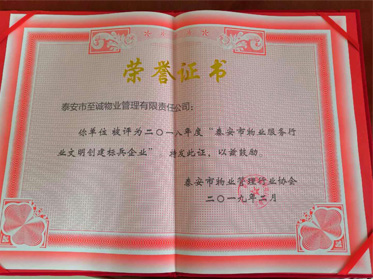 荣誉证书
泰安市至诚物业管理有限责任公司：
你单位 被评为二〇一八年度“泰安市物业服务行
业文明创建标兵企业”。特发此证，以资鼓励。
泰安市物业管理行业协会
二〇一九年二月